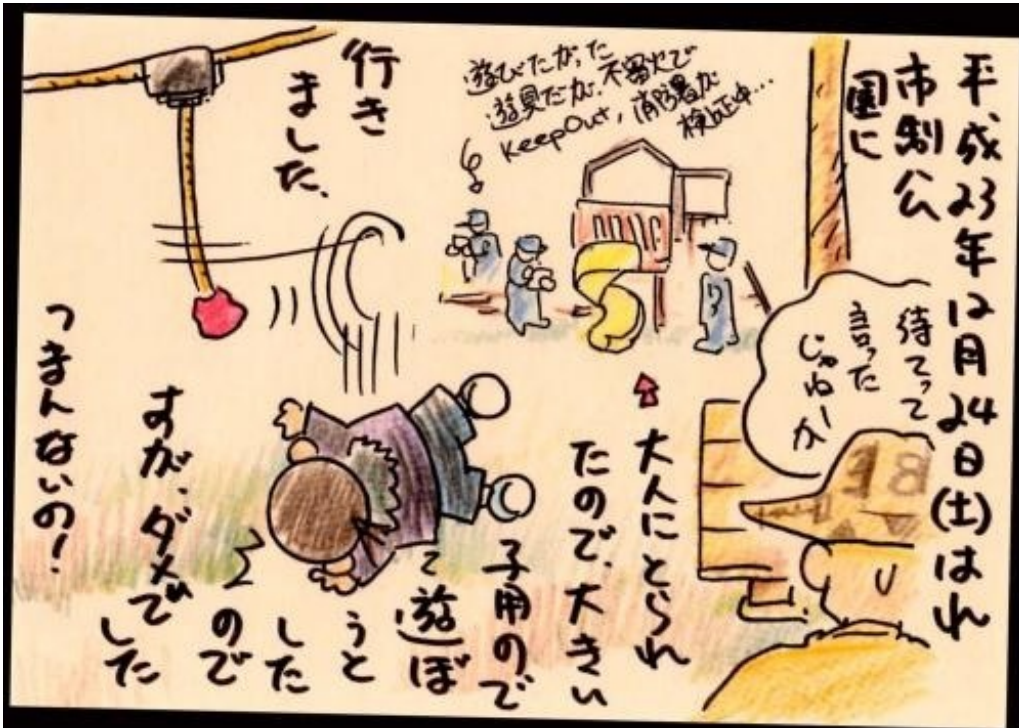 平成23年12月24日(土)はれ
市制公
園に
行き
ました、
遊びたかった
遊具だが、不審火で
KeepOut,消防署が
検証中…
待てって
言った
じゃねー
か
BE
大人にとられ
たので、大きい
子用ので
遊ぼ
うと
した
ので
すが、ダメで
した
つまんないの!